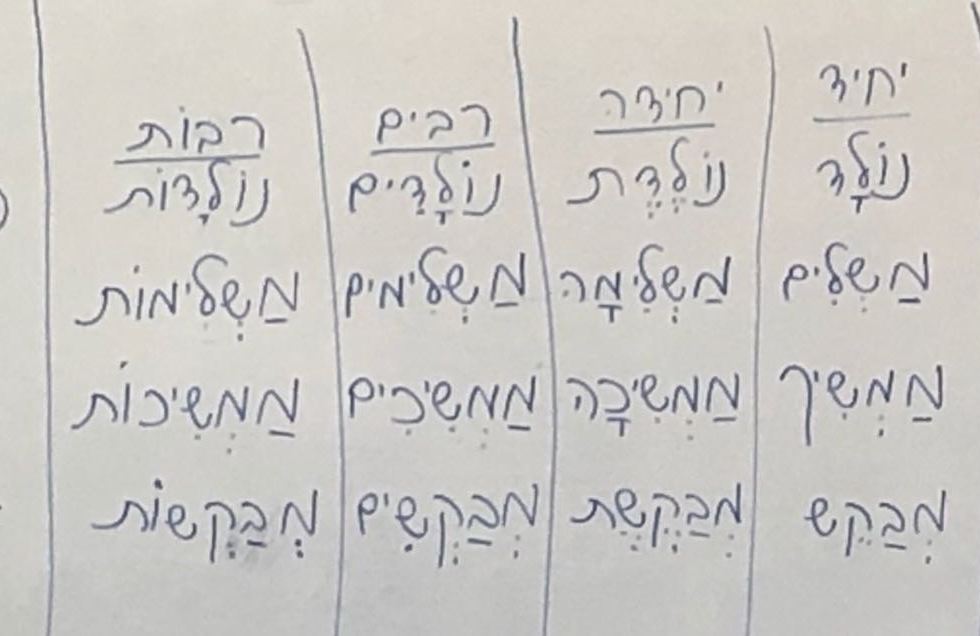 יחיד יחידה רבים רבות
נוֹלָד נוֹלֶדֶת נוֹלָדִים נוֹלָדוֹת
מַשְלִים מַשְלִימָה מַשְלִימים מַשְלִימוֹת
מַמְשִיך מַמְשִיכָה מַמְשִיכִים מַמְשִיכוֹת
מְבַקֵש מְבַקֶשֶת מְבַקְשִים מְבַקְשוֹת